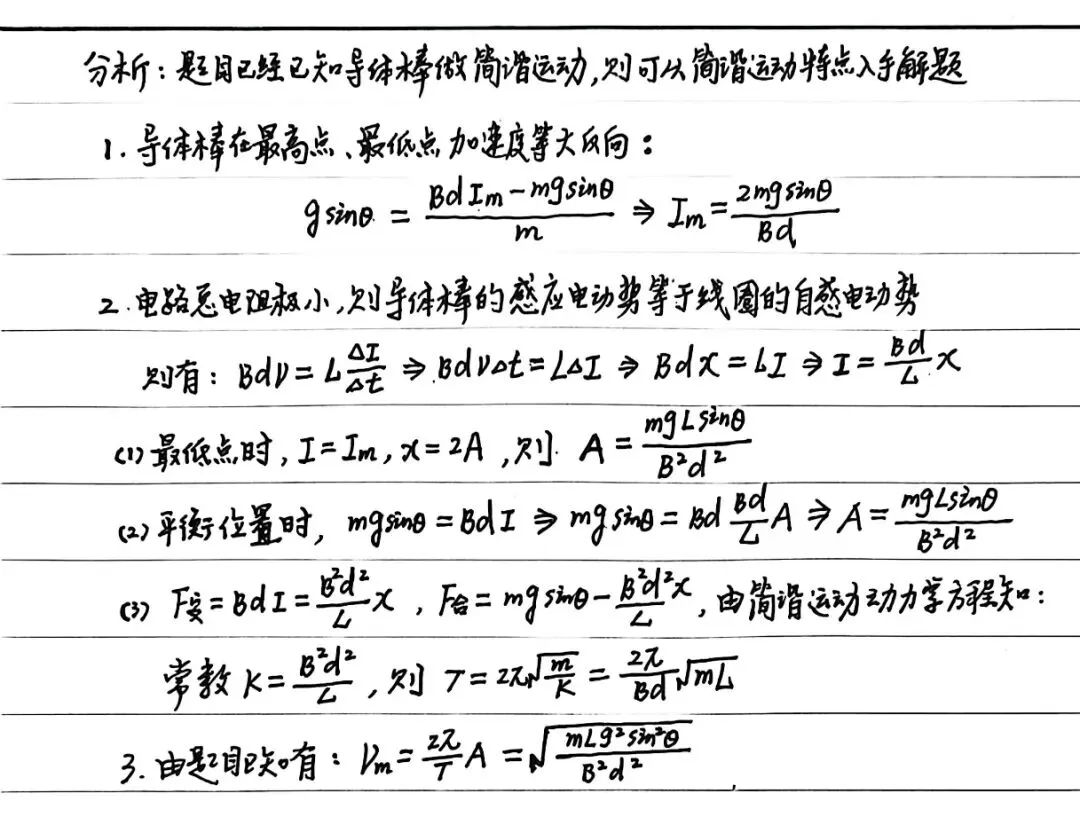 分析：题目已经已知导体棒做简谐运动，则可以简谐运动特点入手解题
1. 导体棒在最高点、最低点加速度等大反向：
gsinθ = (BdIm - mgsinθ)/m ⇒ Im = 2mgsinθ/Bd
2. 电路总电阻极小，则导体棒的感应电动势等于线圈的自感电动势
则有：Bdv = L ΔI/Δt ⇒ BdvΔt = LΔI ⇒ Bdx = LI ⇒ I = Bd/L x
(1) 最低点时，I = Im，x = 2A，则 A = mgLsinθ/B²d²
(2) 平衡位置时，mgsinθ = BdI ⇒ mgsinθ = Bd Bd/L A ⇒ A = mgLsinθ/B²d²
(3) F安 = BdI = B²d²/L x，F合 = mgsinθ - B²d²x/L，由简谐运动动力学方程知：
常数 K = B²d²/L，则 T = 2π√(m/K) = 2π/Bd √mL
3. 由题目已知有：Vm = 2π/T A = √(mLg²sin²θ/B²d²)